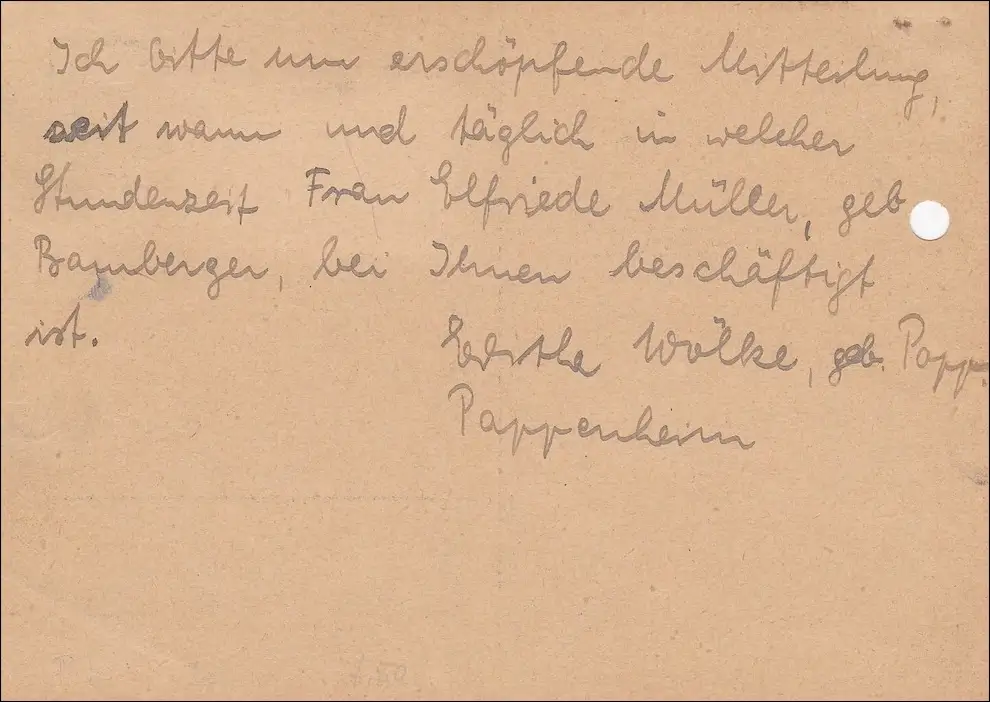 Ich bitte um erschöpfende Mitteilung,
seit wann und täglich in welcher
Stundenzeit Frau Elfriede Müller, geb
Bamberger, bei Ihnen beschäftigt
ist.
Editha Wölke, geb. Papp
Pappenheim